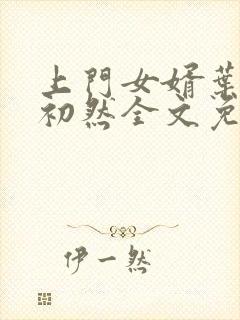 上門女婿葉
初然全文免
伊一然